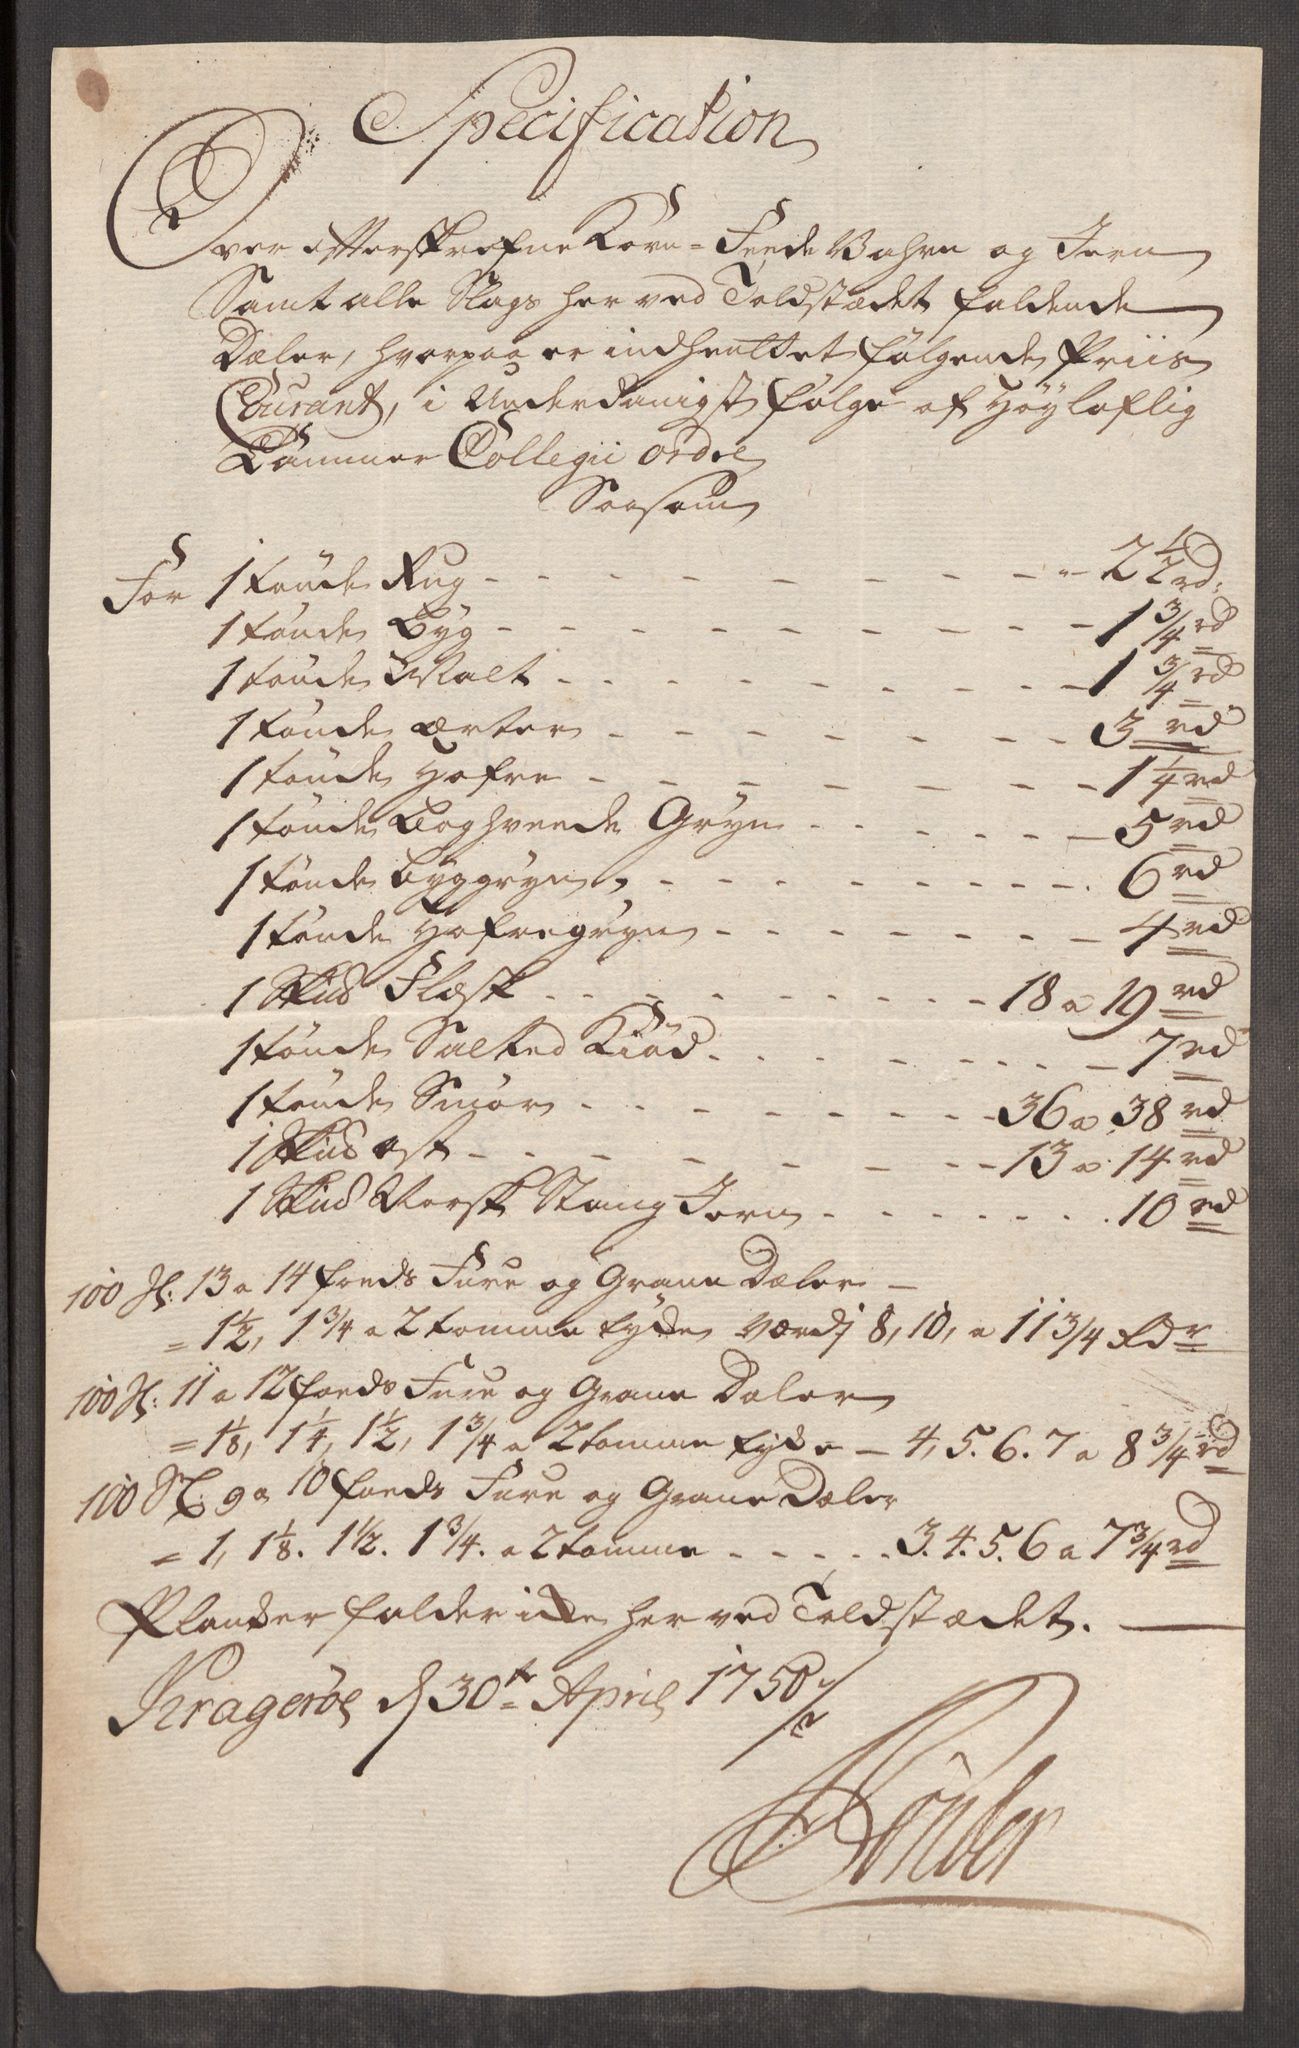 Specification
Over efterskrefne Korn=Feede Vahre og Jern
Samt alle Slags her ved Toldstædet faldende
Dæler, hvorpaa er indhentet følgende Priis
Courant, i Underdanigst følge af Höyloflig
Cammer Collegii ordre
Saasom
For 1 tønde Rug - - - - - - - - - - 2 1/2 rd:
1 tønde Byg - - - - - - - - - - 1 3/4 rd
1 tønde Malt - - - - - - - - - 1 3/4 rd
1 tønde Ærter - - - - - - - - 3 rd
1 tønde Hafre - - - - - - - - 1 1/4 rd
1 tønde Boghveede Gryn - - - - - - 5 rd
1 tønde byggryn - - - - - - - - - 6 rd
1 tønde Hafregryn - - - - - - - - 4 rd
1 Skud Flæsk - - - - - - - - - 18 a 19 rd
1 tønde Salted Kiød - - - - - - - - 7 rd
1 tønde Smør - - - - - - - - - 36 a 38 rd
1 Skud ost - - - - - - - - - 13 a 14 rd
1 Skud Norsk Stang Jern - - - - - - 10 rd
100 St: 13 a 14 foeds Fure og Grane Dæler -
= 1 1/2, 1 3/4 a 2 tomme tykke værd 8, 10, a 11 3/4 Rdr
100 St: 11 a 12 foeds Fure og Grane Dæler
= 1 1/8, 1 1/4, 1 1/2, 1 3/4 a 2 tomme tykke - 4, 5. 6. 7 a 8 3/4 rd
100 St: 9 a 10 foeds Fure og Grane Dæler
= 1, 1 1/8. 1 1/2. 1 3/4. a 2 tomme - - - - - 3. 4. 5. 6 a 7 3/4 rd
Planker falder ikke her ved Toldstædet.
Kragerøe d 30te April 1750